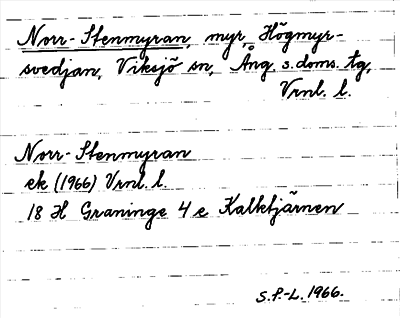 Norr-Stenmyran, myr, Högmyr-
svedjan, Viksjö sn, Ång. s. doms. tg,
Vrnl. l.
Norr-Stenmyran
ek (1966) Vrnl. l.
18 H Graninge 4 e Kalktjärnen
S.P.-L. 1966.